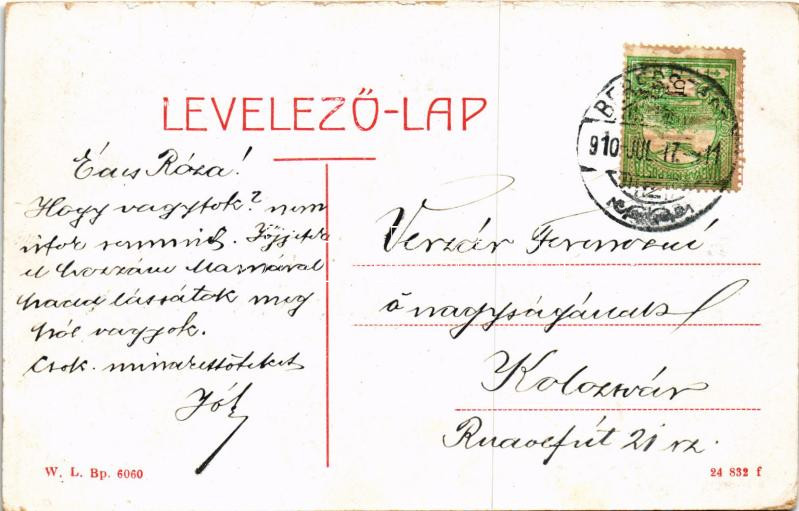 LEVELEZŐ-LAP
Édes Róza!
Hogy vagytok? nem
irtok semmit. Jöjjetek
el hozzám Mamával
hadd lássátok meg
hól vagyok.
Csok. mindettőtöket
910 JUL. 17.
Verzár Ferencné
ő nagyságának
Kolozsvár
21 sz.
W. L. Bp. 6060
24 832 f